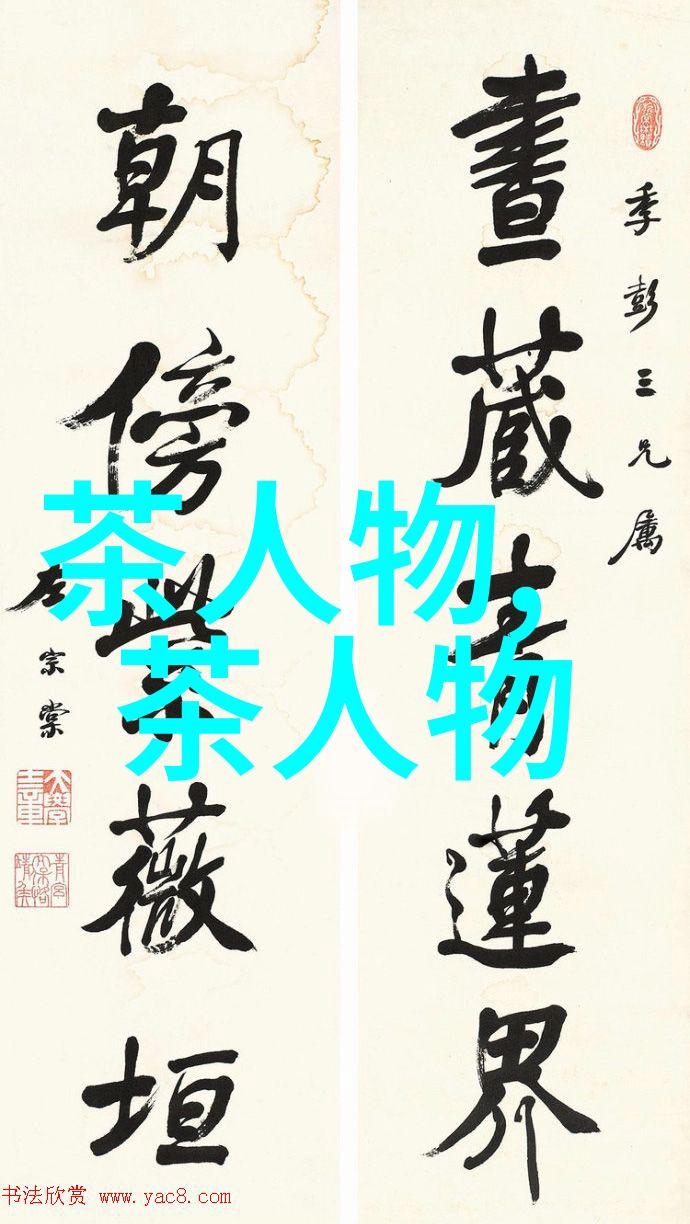 季彭三兄属
晝藏青蓮界
朝傍紫薇垣
左宗棠
茶人物,
茶人物
书法欣赏 www.yac8.com